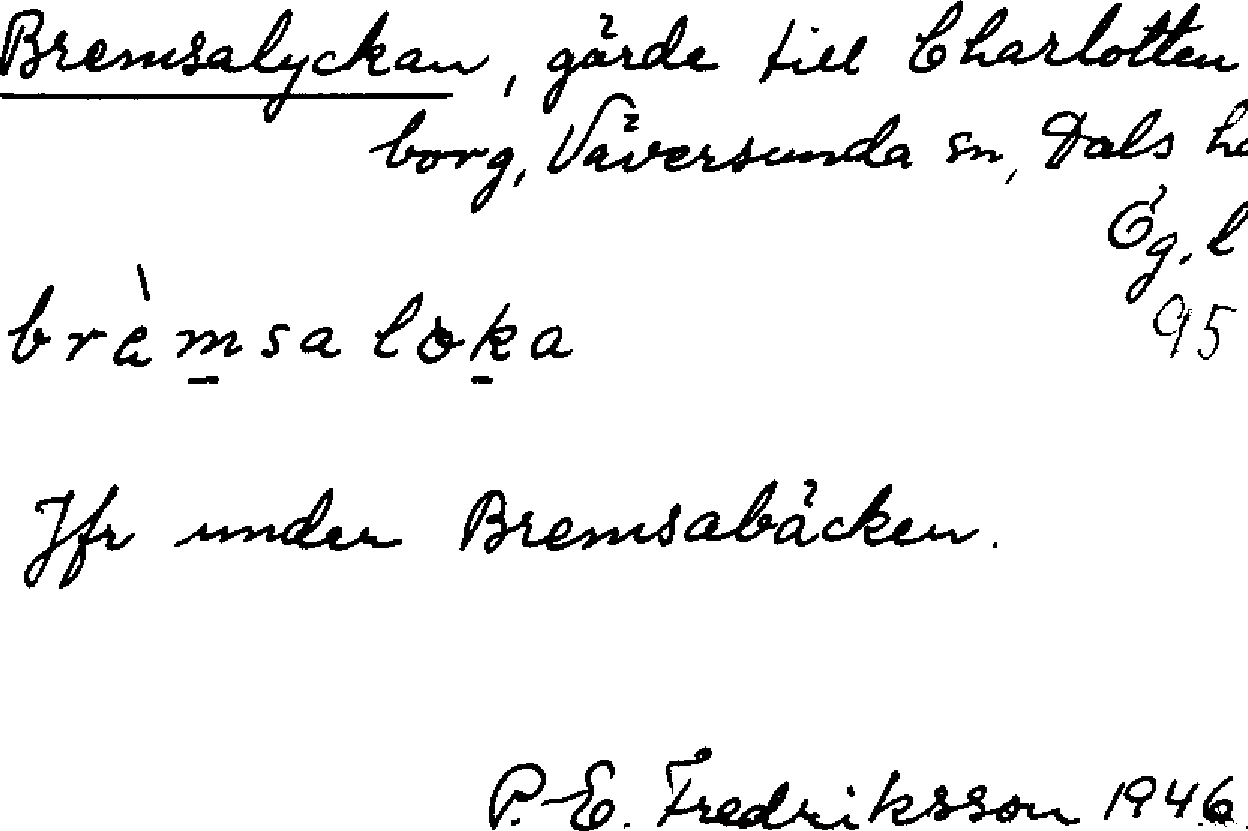 Bremsalyckan, gärde till Charlotten
borg, Väversunda sn, Dals h
Ög. l
95
brèmsaloka
Jfr under Bremsabäcken.
P.-E. Fredriksson 1946.